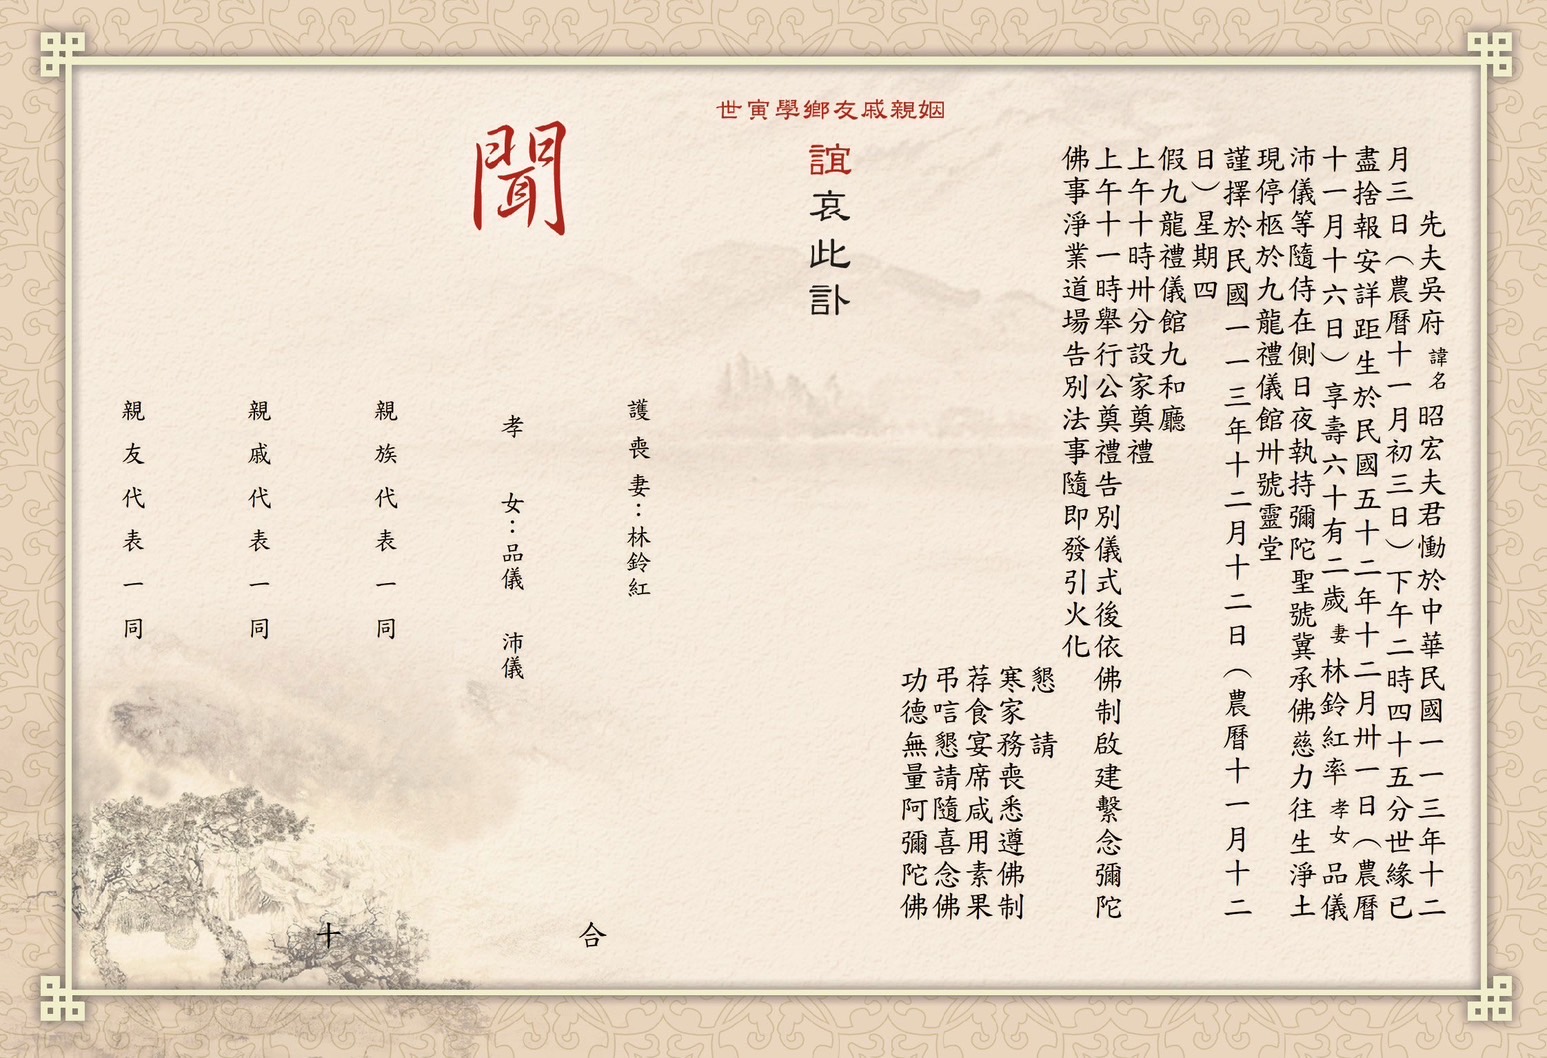 先夫吳府 諱名 昭宏夫君慟於中華民國一一三年十二
月三日（農曆十一月初三日）下午二時四十五分世緣已
盡捨報安詳距生於民國五十二年十二月卅一日（農曆
十一月十六日）享壽六十有二歲 妻 林鈴紅率 孝女 品儀
沛儀等隨侍在側日夜執持彌陀聖號冀承佛慈力往生淨土
現停柩於九龍禮儀館卅號靈堂
謹擇於民國一一三年十二月十二日（農曆十一月十二
日）星期四
假九龍禮儀館九和廳
上午十時卅分設家奠禮
上午十一時舉行公奠禮告別儀式後依佛制啟建繫念彌陀
佛事淨業道場告別法事隨即發引火化
懇請
寒家務喪悉遵佛制
荐食宴席咸用素果
弔唁懇請隨喜念佛
功德無量阿彌陀佛
姻親戚友鄉學寅世
誼哀此訃
聞
護喪妻：林鈴紅
孝女：品儀 沛儀
親族代表一同
親戚代表一同
親友代表一同
合十